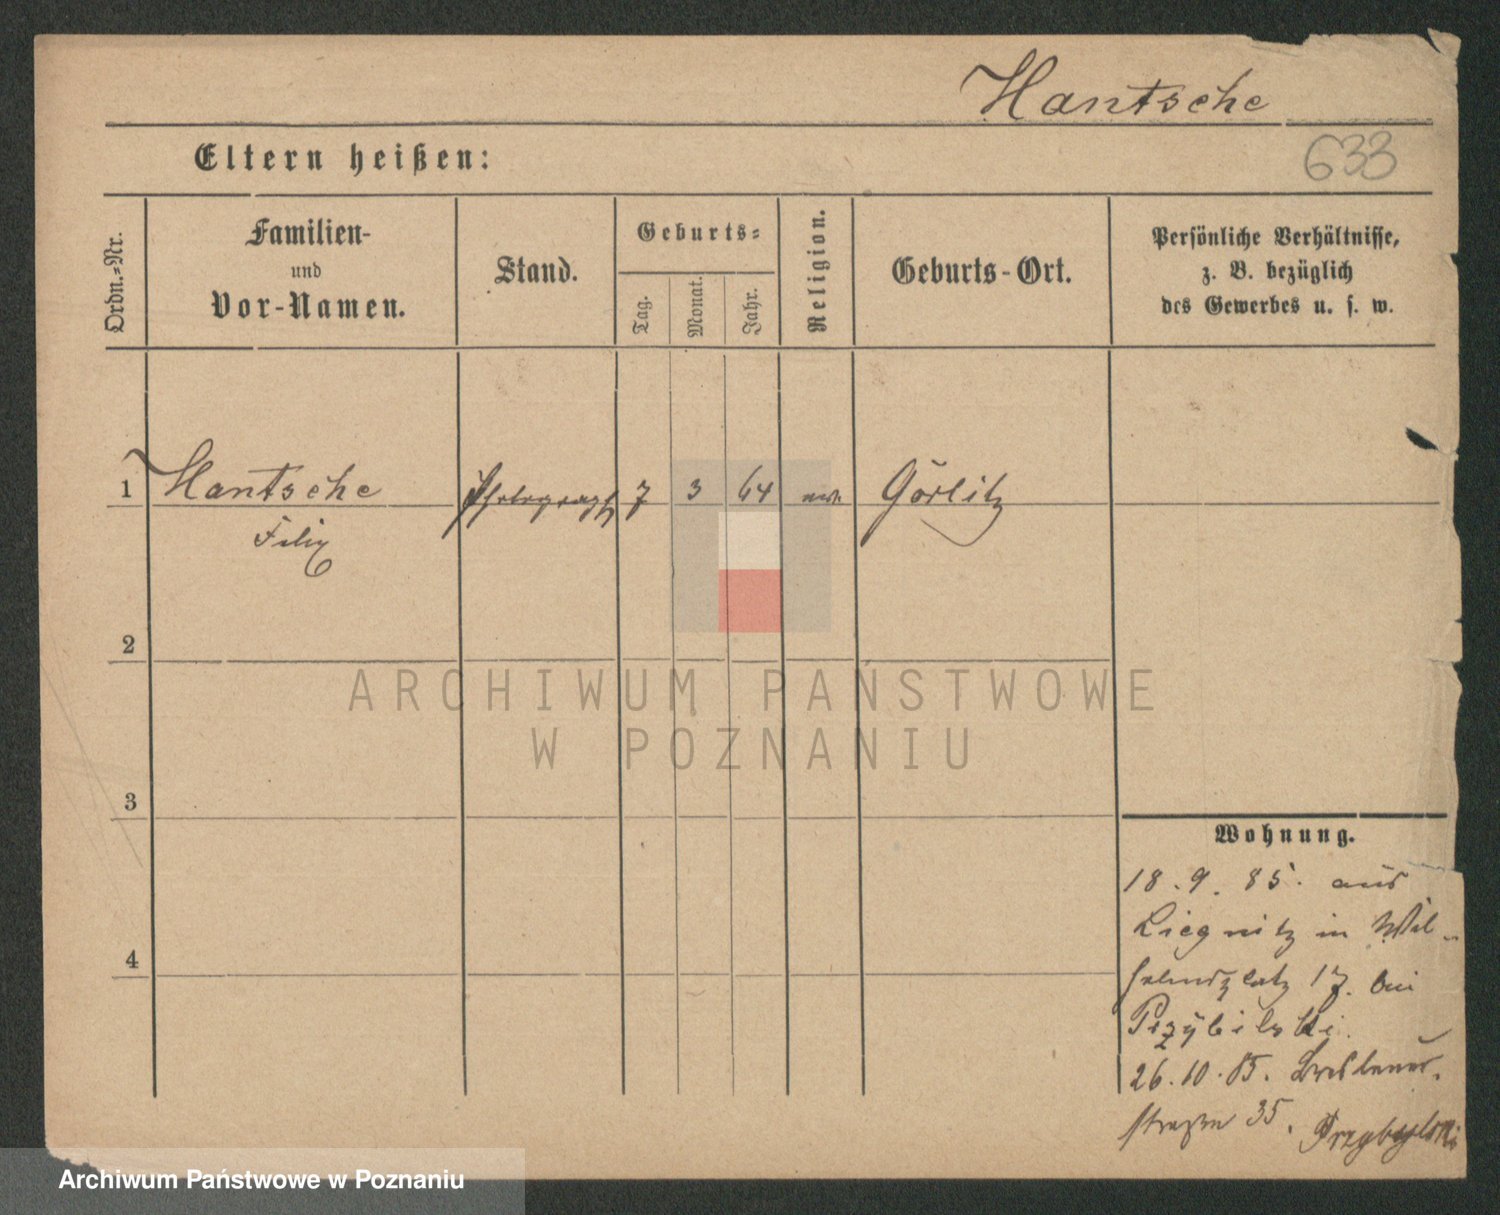 Hantsche
633
Eltern heißen:
Ordn.=Nr.
Familien-
und
Vor-Namen.
Stand.
Geburts=
Tag.
Monat.
Jahr.
Religion.
Geburts-Ort.
Persönliche Verhältnisse,
z. B. bezüglich
des Gewerbes u. s. w.
1 Hantsche Photograph 7 3 64 Görlitz
Felix
2
ARCHIWUM PAŃSTWOWE
W POZNANIU
3
Wohnung.
18.9.85. aus
Liegnitz in Wil-
helmsplatz 17. bei
Przybilski.
4
26.10.85. Breslauer-
straße 35. Przybylski
Archiwum Państwowe w Poznaniu